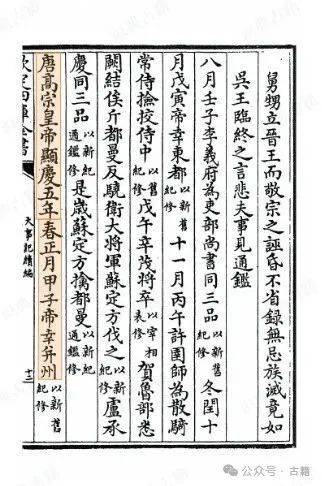 舅甥立晉王而敬宗之誣昏不省録無忌族滅竟如
吳王臨終之言悲夫事見通鑑
八月壬子李義府為吏部尚書同三品以新紀修冬閏十
月戊寅帝幸東都以舊紀修十一月丙午許圉師為散騎
常侍撿校侍中以舊紀修戊午辛茂將卒以宰相表修賀魯部悉
闕結俟斤都曼反驍衛大將軍蘇定方伐之以新紀修盧承
慶同三品以新紀通鑑修是歲蘇定方擒都曼以新紀通鑑修
唐高宗皇帝顯慶五年春正月甲子帝幸并州以新舊紀修
欽定四庫全書
大事記續編
十三
公众号·古籍